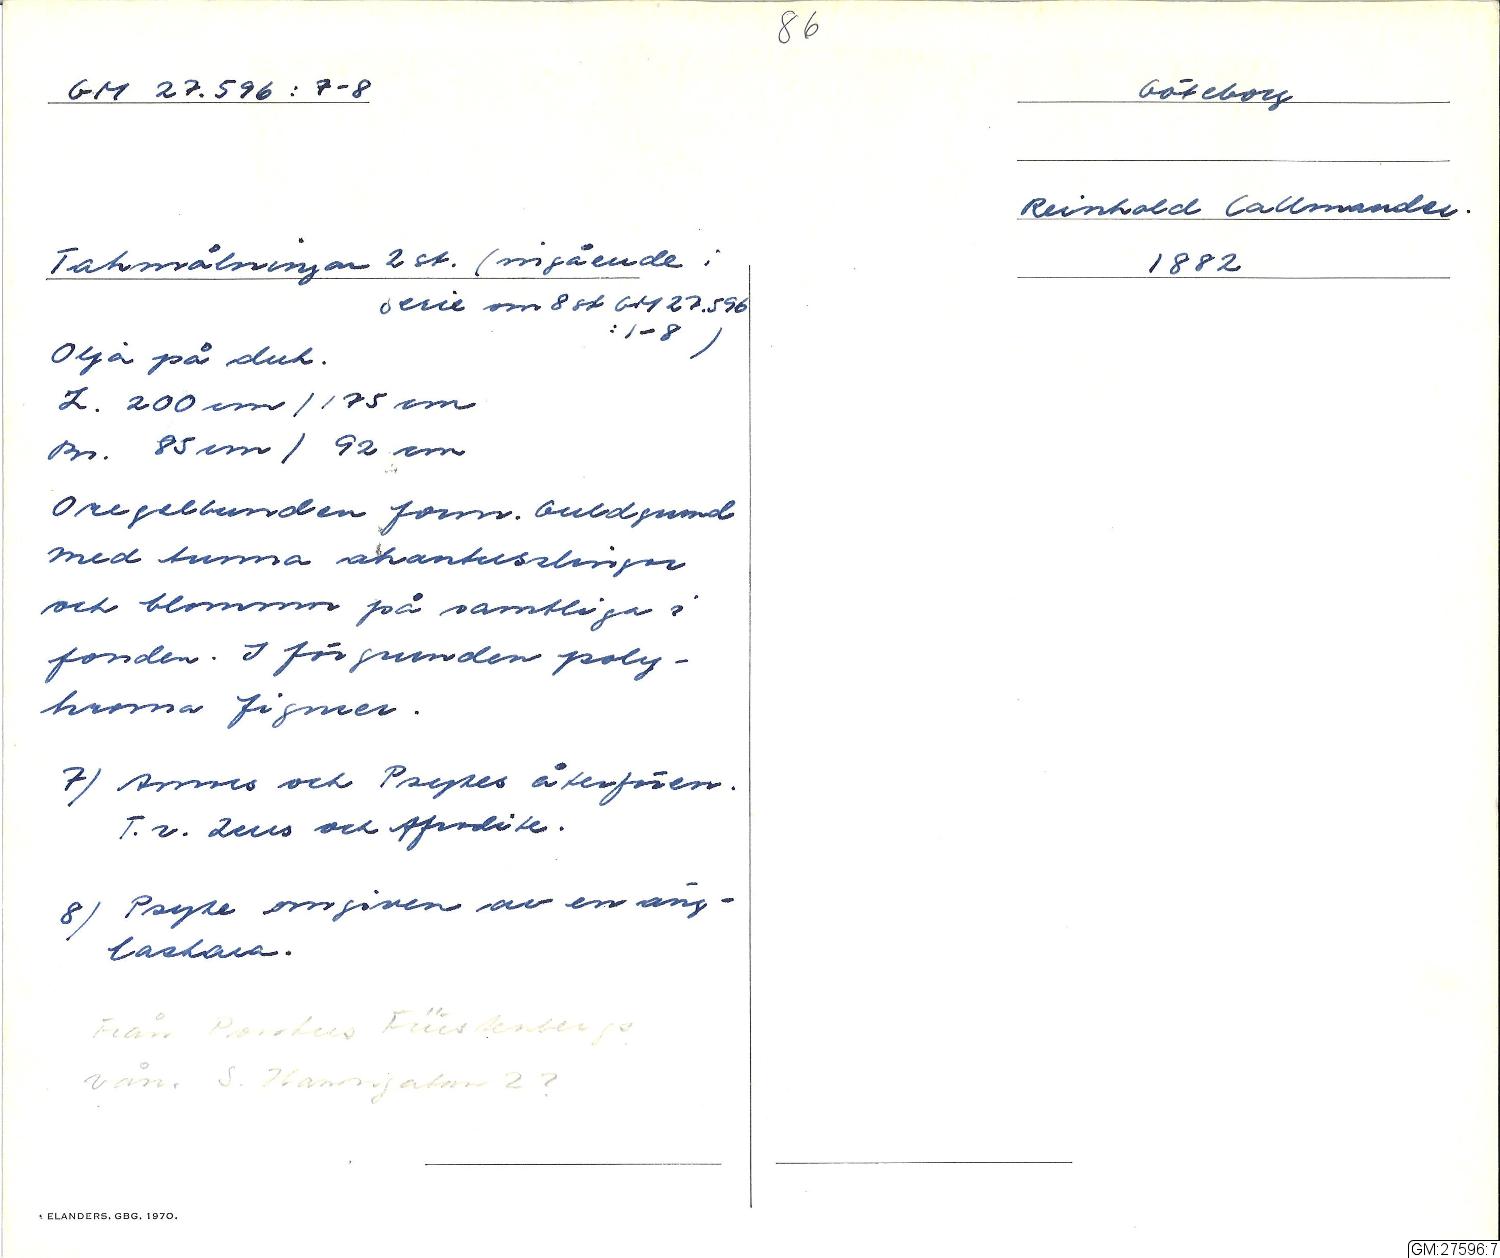 86
GM 27.596 : 7-8
Göteborg
Reinhold Callmander.
1882
Takmålningar 2 st. (ingående i
serie om 8 st GM 27.596
:1-8 )
Olja på duk.
L. 200 cm / 175 cm
Br. 85 cm / 92 cm
Oregelbunden form. Guldgrund
med tunna akantusslingor
och blommor på samtliga i
fonden. I förgrunden poly-
kroma figurer.
7) Amors och Psykes återfören.
T.v. Zeus och Afrodite.
8) Psyke omgiven av en äng-
laskara.
Från Pontus Fürstenbergs
vån. S. Hamngatan 2?
ELANDERS, GBG, 1970.
GM:27596:7